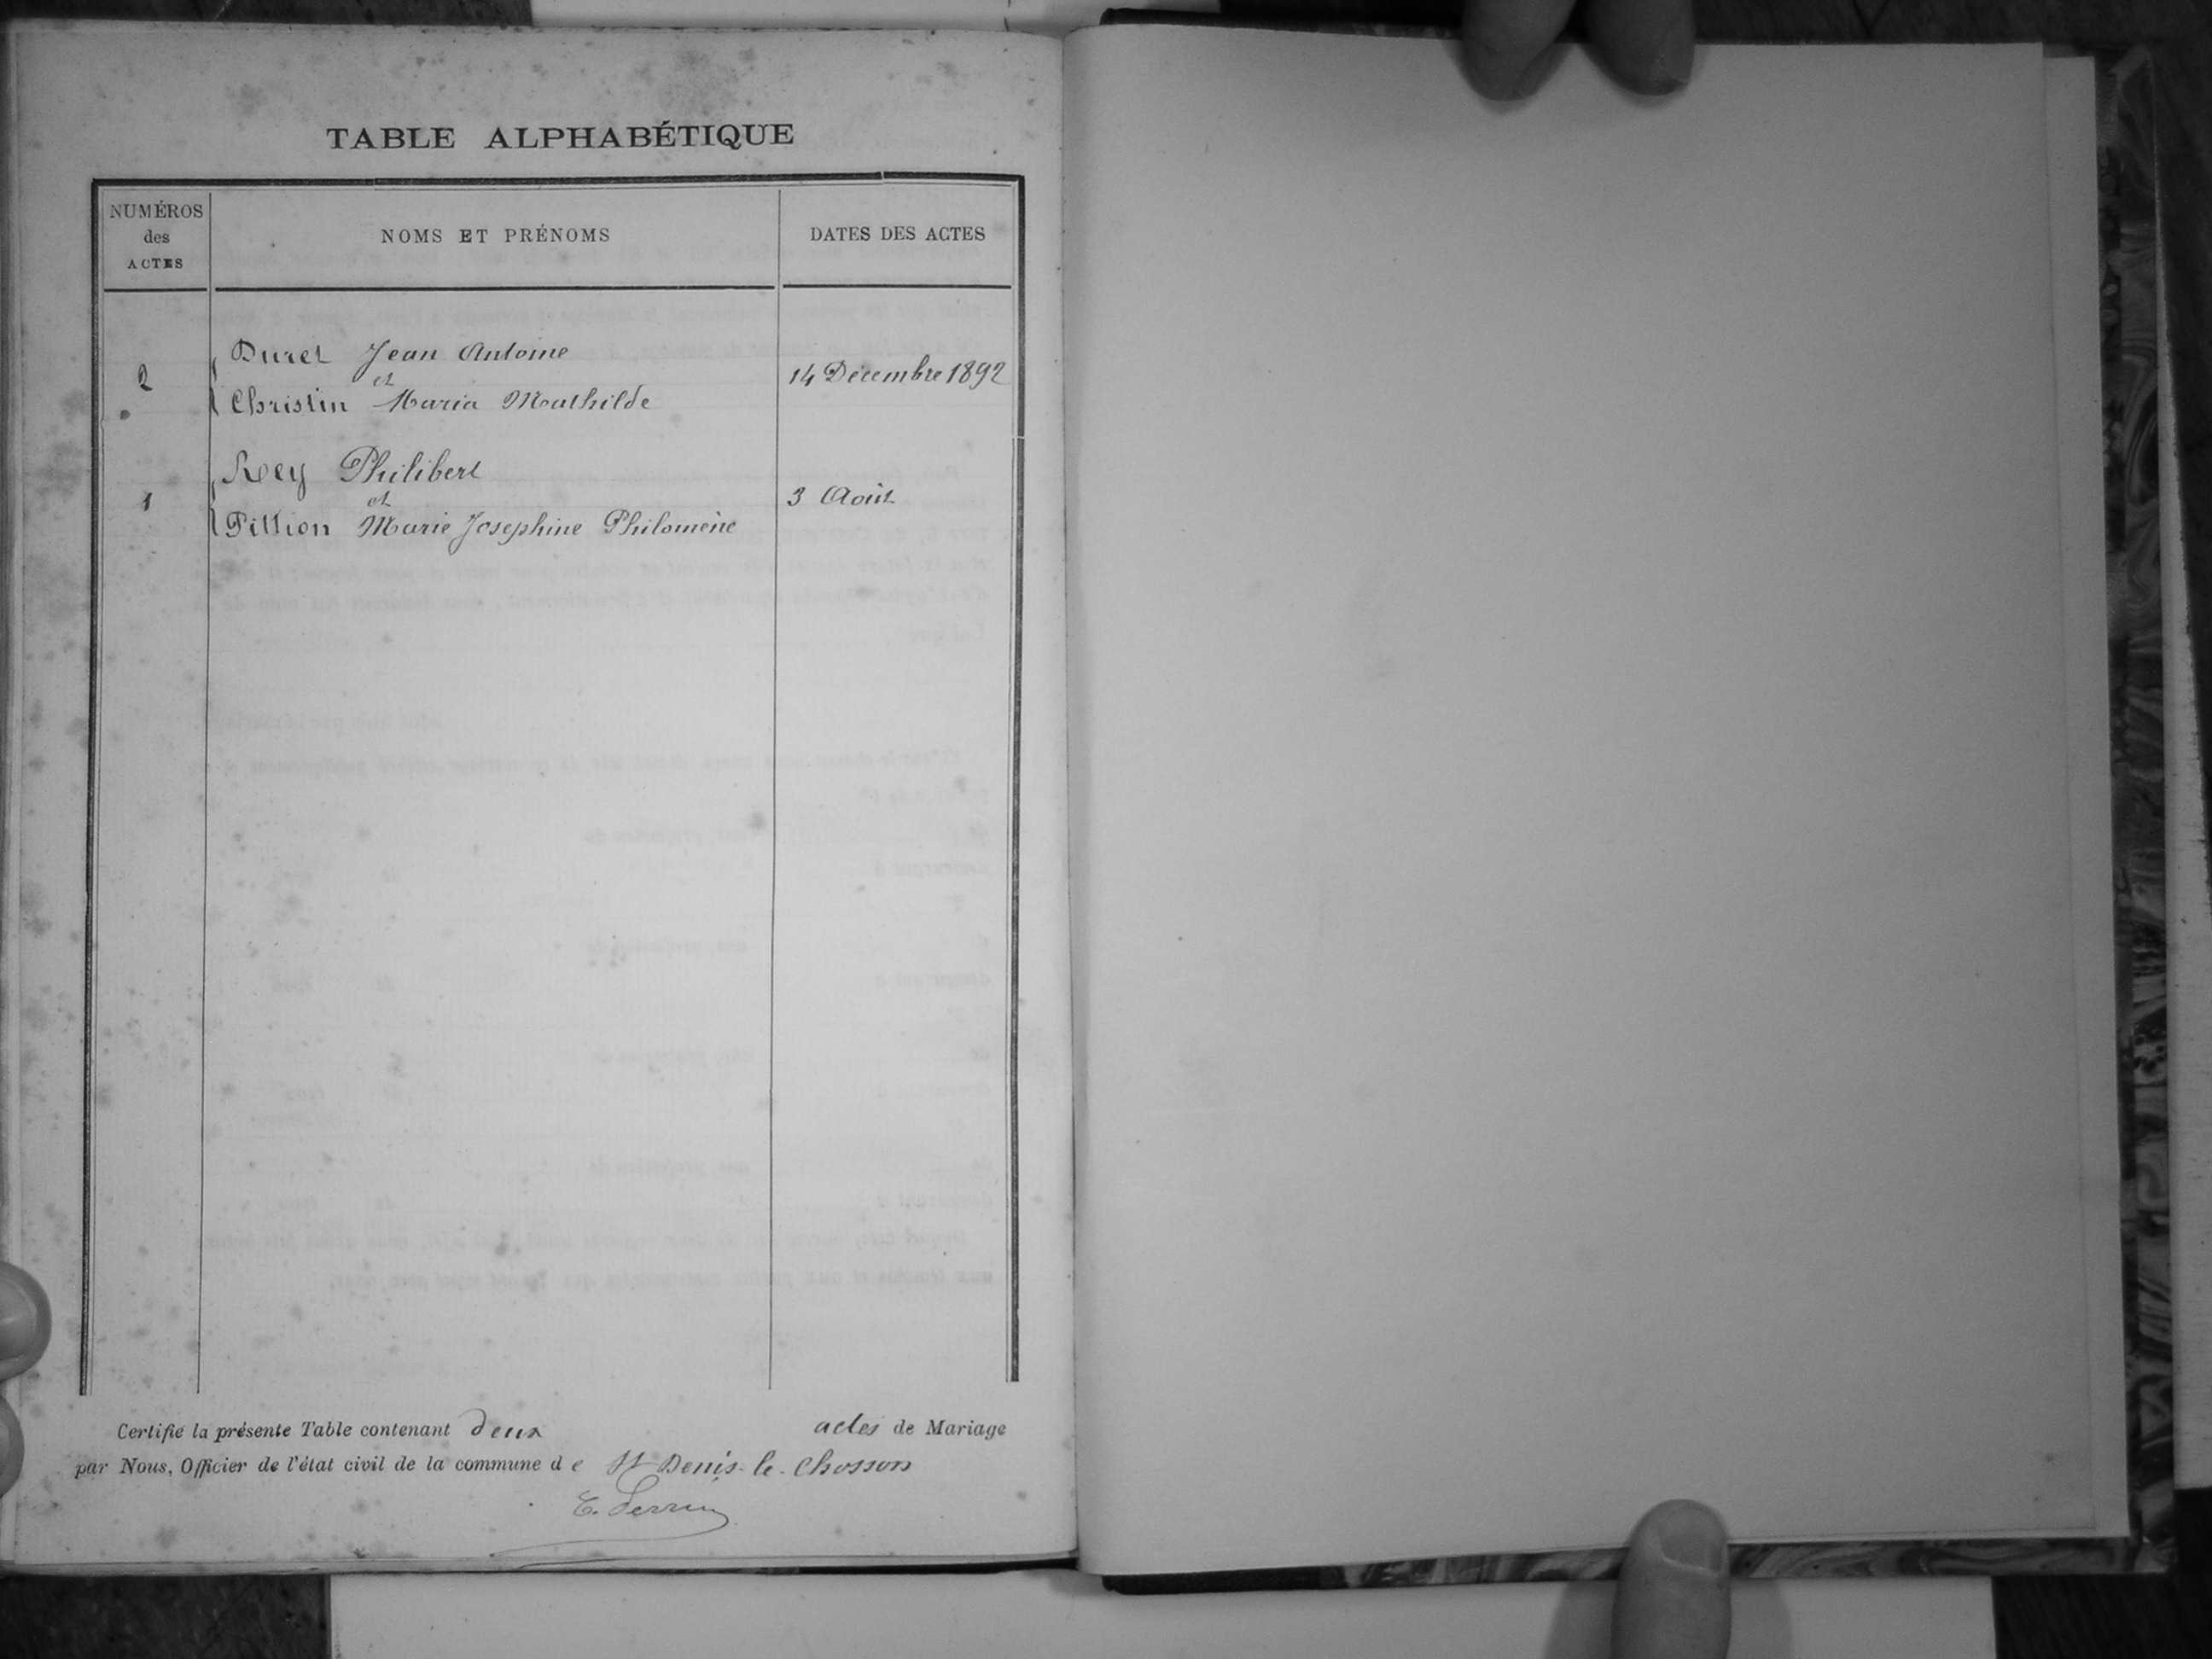 TABLE ALPHABÉTIQUE
NUMÉROS
des
ACTES
NOMS ET PRÉNOMS
DATES DES ACTES
Duret Jean Antoine
2
et
14 Décembre 1892
Christin Maria Mathilde
Rey Philibert
1
et
3 Août
Pittion Marie Josephine Philomène
Certifié la présente Table contenant deux actes de Mariage
par Nous, Officier de l'état civil de la commune de St Denis-le-Chosson
E. Perrin